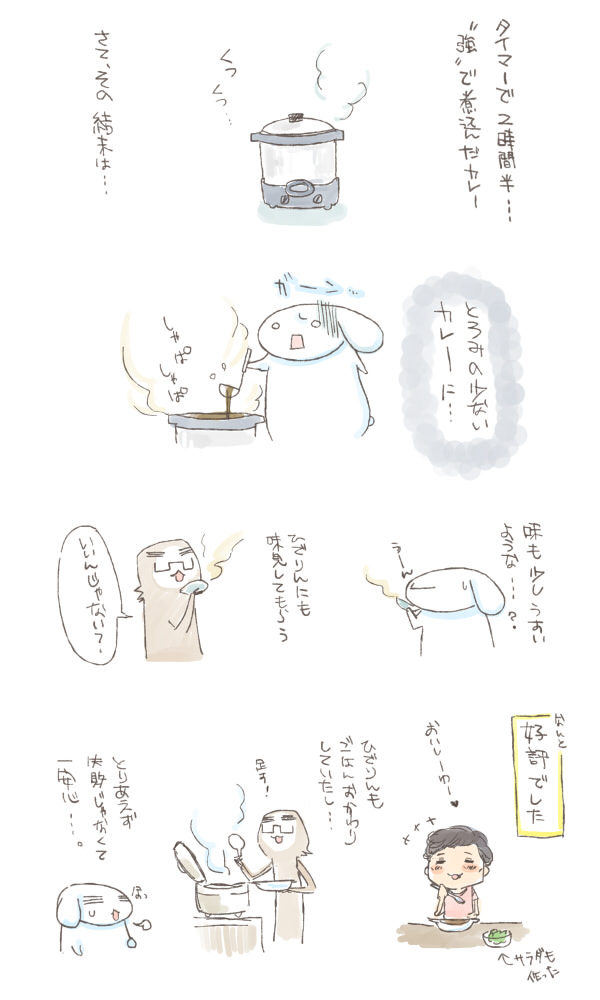 タイマーで2時間半…
"強"で煮込んだカレー
くつ
くつ…
さて、その結末は…
とろみの少ない
カレーに…
ガーン…
しゃぱ
しゃぱ
味も少しうすい
ような…？
うーん
ひでりんにも
味見してもらう
いいんじゃない？
なんと
好評でした
おいしーわー♥
↑サラダも
作った
ひでりんも
ごはんおかわり
していたし…
足す！
とりあえず
失敗じゃなくて
一安心…。
ほっ